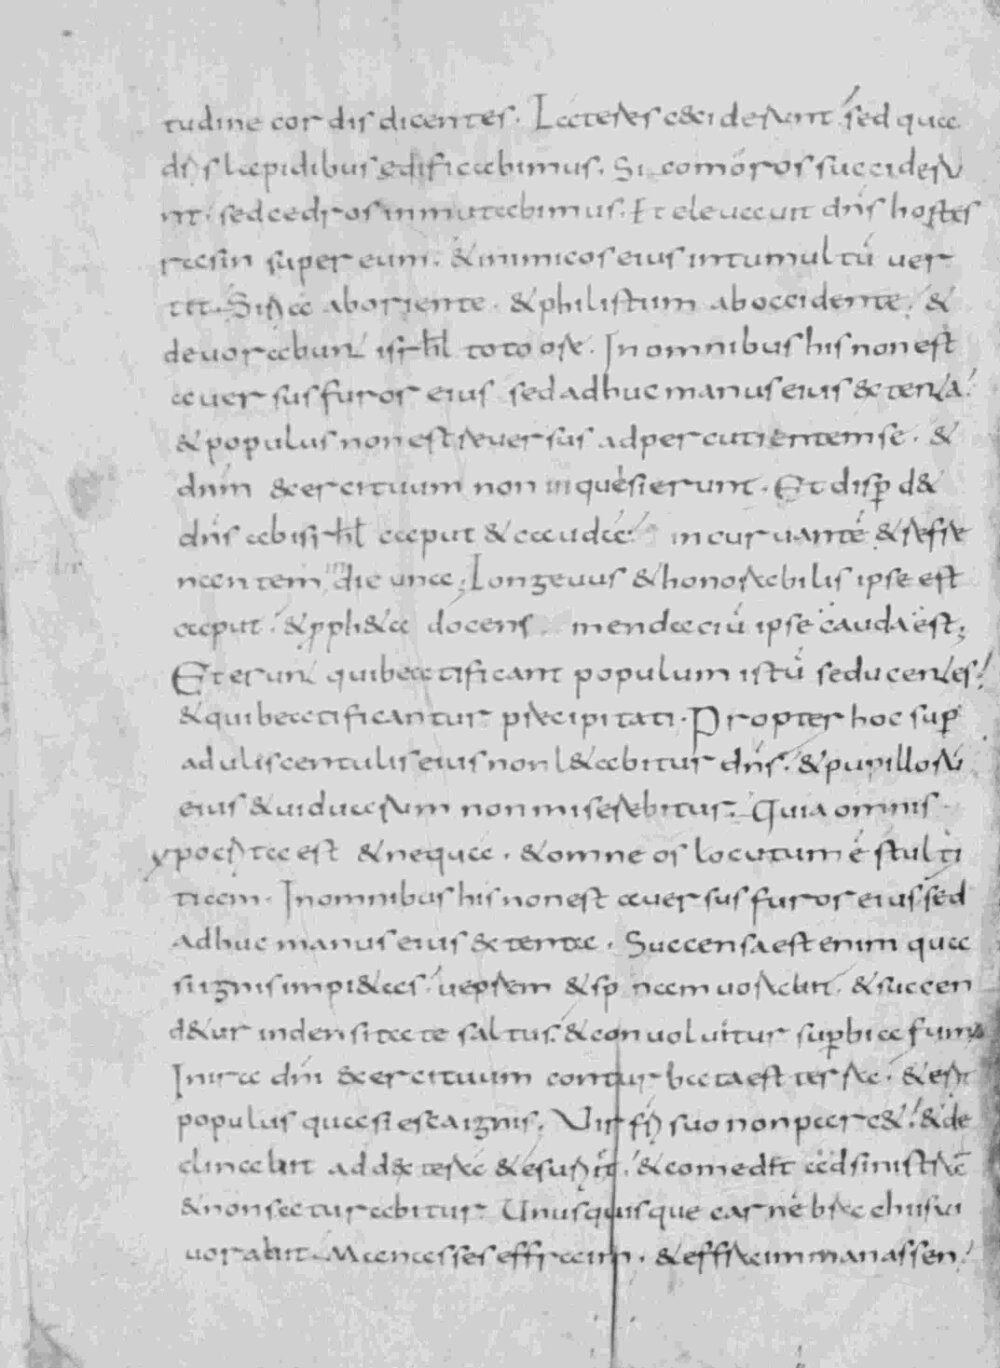 tudine cordis dicentes. Lateres ceciderunt sed qua
dris lapidibus edificabimus. Sicomoros succideru
nt. sed cedros inmutabimus. Et eleuauit dn̄s hostes
rasin super eum. & inimicos eius intumultū uer
tit. Siria aboriente. & philistim aboccidente. &
deuorabunt isrħl toto ore. In omnibus his non est
auersus furor eius sed adhuc manus eius extenta.
& populus non est reuersus ad percutientem se. &
dnm̄ exercituum non inquesierunt. Et disp̄ d&
dn̄s abisrħl caput & caudā. incuruantē & refre
nantem in die una. Longeuus & honorabilis ipse est
caput. & pph&a docens mendaciū ipse cauda est;
Et erunt qui beatificant populum istū seducentes.
& qui beatificantur precipitati. Propter hoc sup̄
aduliscentulis eius non l&abitur dn̄s. & pupillorū
eius & uiduarum non miserebitur. Quia omnis
ypocrita est & nequa. & omne os locutum ē stulti
tiam. In omnibus his non est auersus furor eius. sed
adhuc manus eius extenta. Succensa est enim qua
si ignis impi&as. ueprem & sp̄nam uorabit. & succen
d&ur indensitate saltus. & conuoluitur sup̄bia fumi
In ira dn̄i exercituum conturbata est terra. & erit
populus quasi esca ignis. Vir fri suo non parc&. & de
clinabit ad dexterā & esuri&. & comed& ad sinistrā
& non saturabitur. Unusquisque carnē brachii sui
uorabit. Manasses effraim. & effraim manassen.